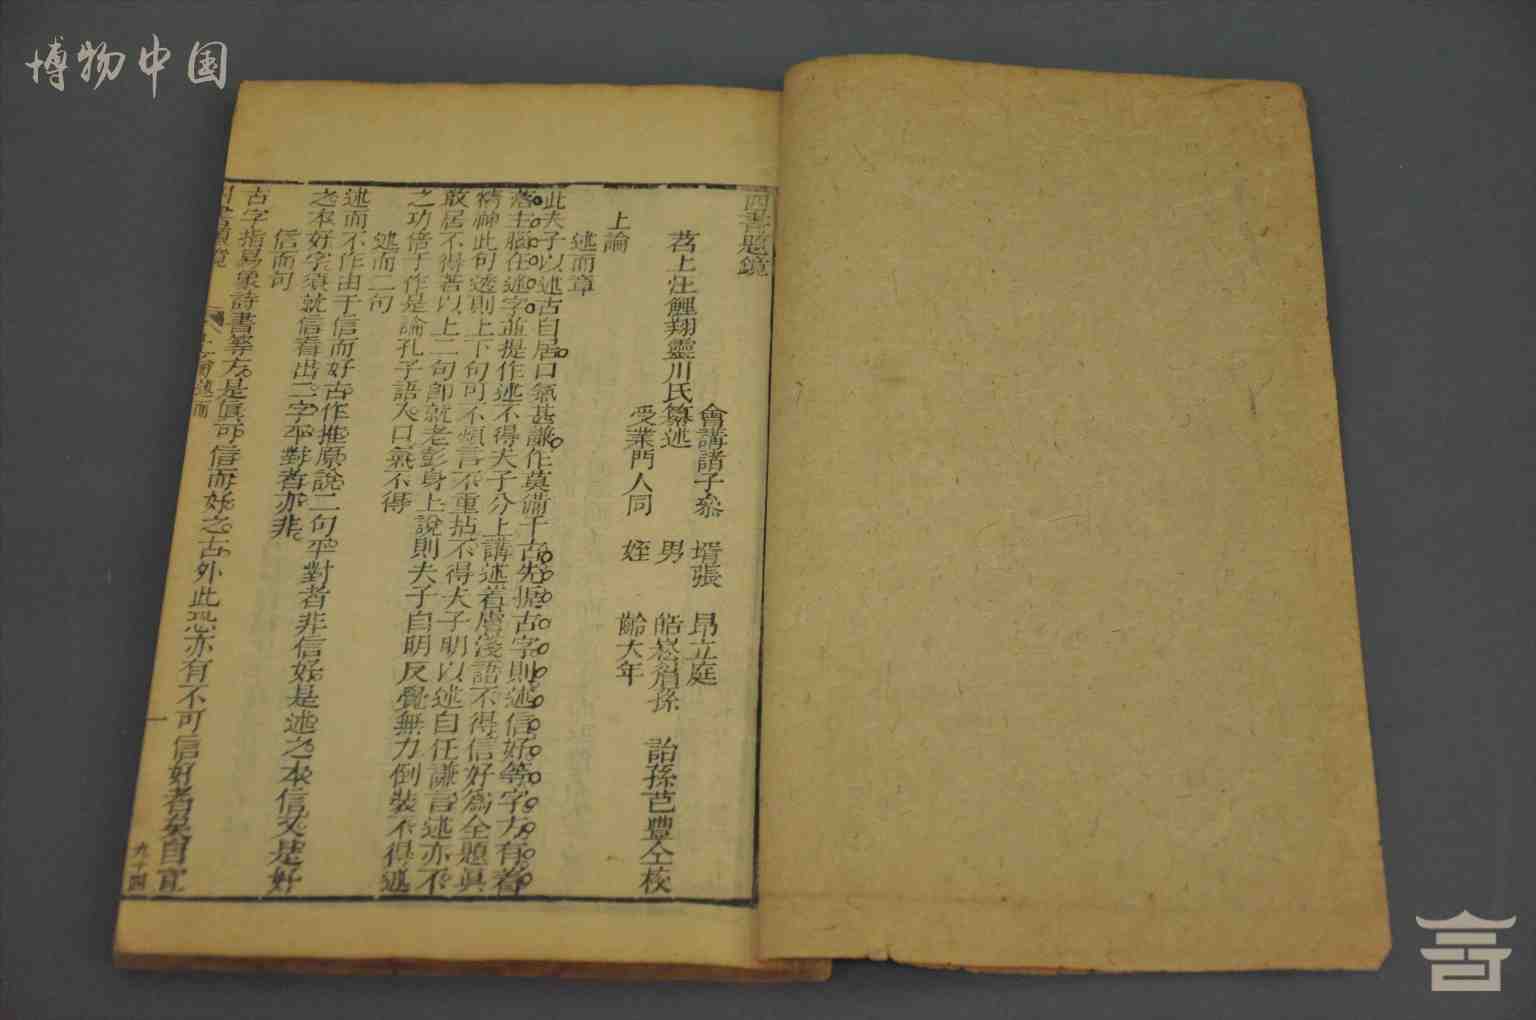 博物中国
四書題鏡
會講諸子叅 壻張 昂立庭
苕上汪鯉翔靈川氏纂述 男 皓崧眉孫 詒孫芑豐仝校
受業門人同 姪 齡大年
上論
述而章
此夫子以述古自居口氣甚謙作莫備于古先據古字則述信好等字方有着
落主腦在述字並提作述不得夫子分上講述着膚淺語不得信好爲全題眞
精神此句透則上下句可不煩言不重拈不得夫子明以述自任謙言述亦不
敢居不得若以上二句卽就老彭身上說則夫子自明反覺無力倒裝不得述
之功倍于作是論孔子語入口氣不得
述而二句
述而不作由于信而好古作推原說二句平對者非信好是述之本信又是好
之本好字須就信看出二字平對者亦非
信而句
古字指易象詩書等方是眞可信而好之古外此恐亦有不可信好者矣自宜
四書題鏡 上論述而 一 九十四